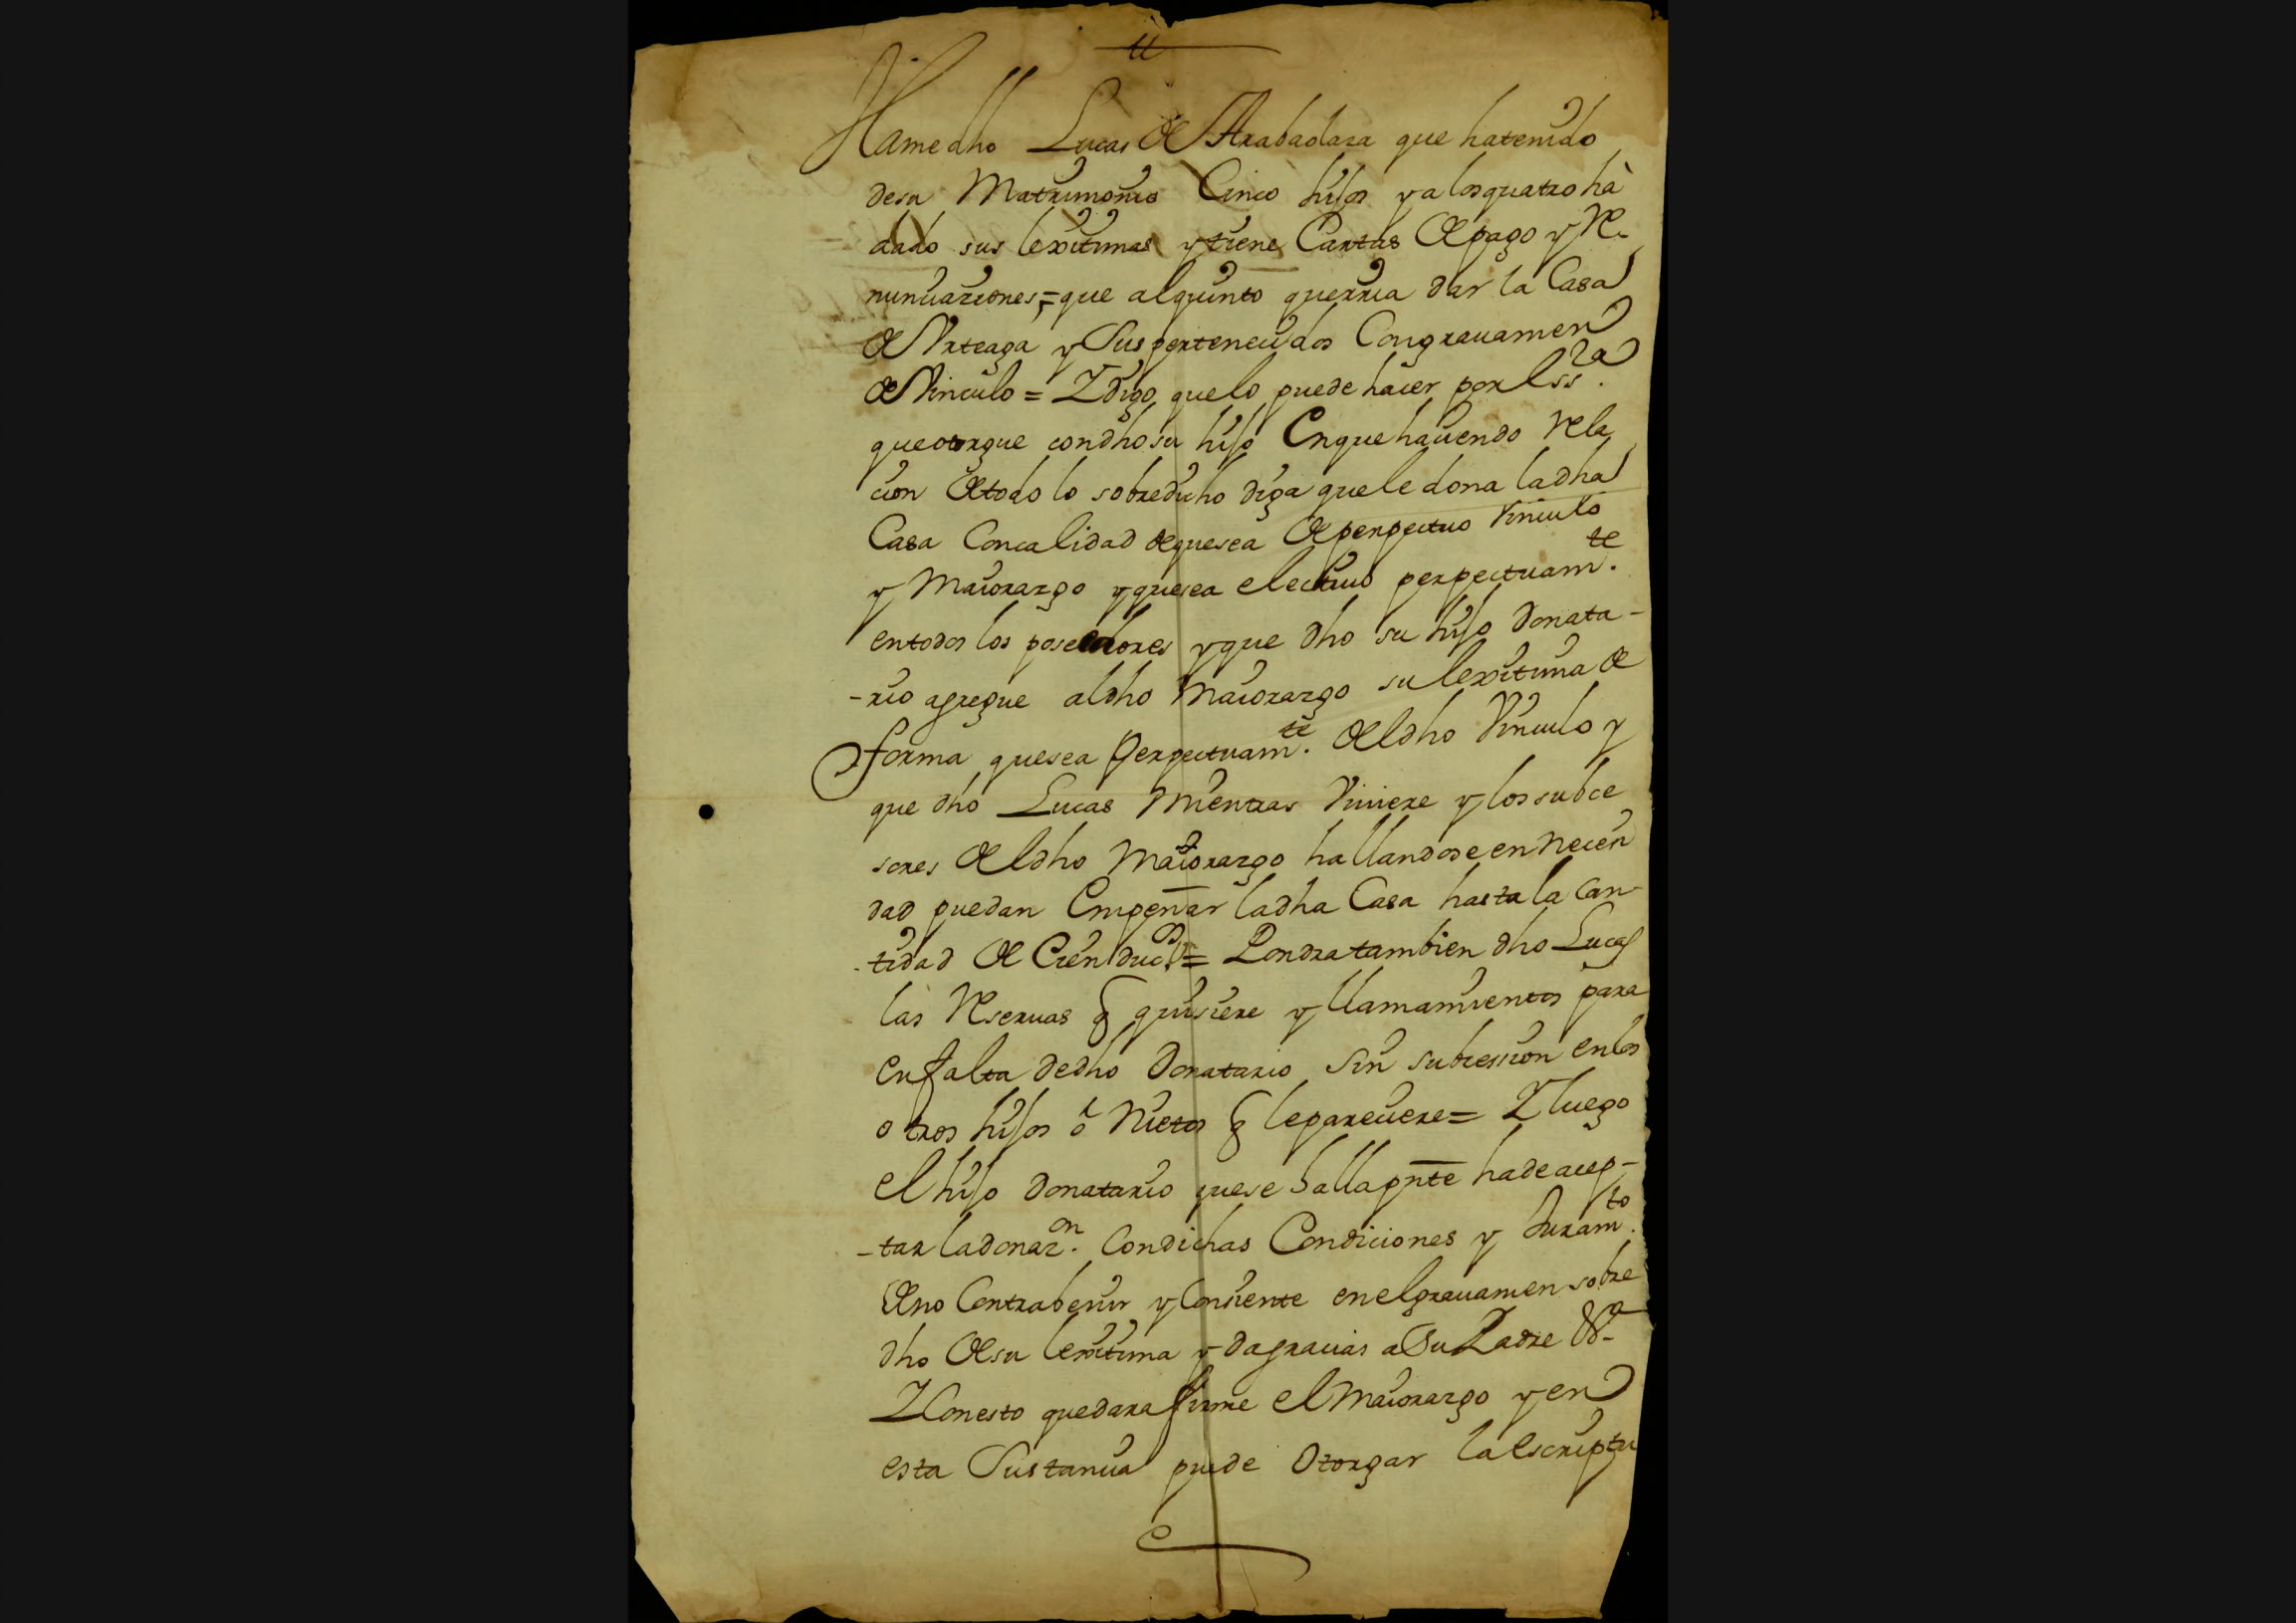 Hame dho Lucas de Arabaolaza que hatenido
desu Matrimonio Cinco hijos y a los quatro hà
dado sus lexitimas y tiene Cartas de pago y Re-
nunciaziones, = que alquinto querria dar la Casa
de Arteaga y Sus pertenecidos Congrauamen
de Vinculo = Y digo, quelo puede hacer por Ess.ra
queotorgue condho su hijo Enque haciendo rela
cion de todo lo sobredicho diga que le dona la dha
Casa Concalidad dequesea de perpetuo Vinculo
y Maiorazgo y quesea electiuo perpectuam.te
entodos los poseedores y que dho su hijo Donata-
-rio agregue aldho Maiorazgo su lexitima de
forma quesea perpectuam.te del dho Vinculo y
que dho Lucas Mientras Viuiere y los subce
sores del dho Maiorazgo hallandose en necesi
dad puedan Empeñar la dha Casa hasta la Can-
-tidad de Cien duc.os = Pondra tambien dho Lucas
las Reseruas q quisiere y llamamientos para
en falta de dho Donatario sin subcession en los
otros hijos ò Nietos q le pareciere = Y luego
el hijo Donatario que se halla pnte ha de acep-
-tar la donaz.on Con dichas Condiciones y Juram.to
de no Contrabenir y Consiente en el grauamen sobre
dho de su lexitima y da gracias a Su Padre &a
Y Conesto quedara firme el Maiorazgo y en
esta Sustancia puede Otorgar la Escriptu